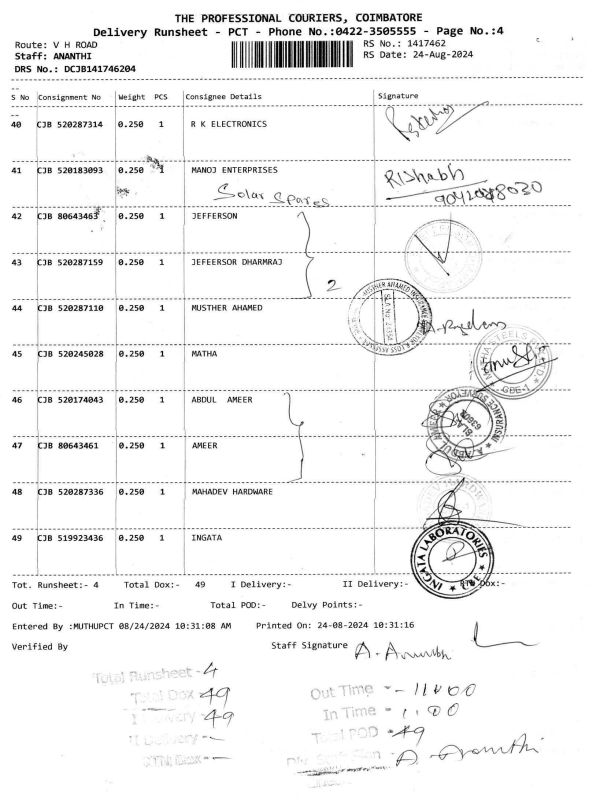 THE PROFESSIONAL COURIERS, COIMBATORE
Delivery Runsheet - PCT - Phone No.:0422-3505555 - Page No.:4
Route: V H ROAD RS No.: 1417462
Staff: ANANTHI RS Date: 24-Aug-2024
DRS No.: DCJB141746204
S No Consignment No Weight PCS Consignee Details Signature
40 CJB 520287314 0.250 1 R K ELECTRONICS
41 CJB 520183093 0.250 1 MANOJ ENTERPRISES Rishabh
Solar Spares
42 CJB 80643463 0.250 1 JEFFERSON
43 CJB 520287159 0.250 1 JEFEERSOR DHARMRAJ
2
44 CJB 520287110 0.250 1 MUSTHER AHAMED
45 CJB 520245028 0.250 1 MATHA
46 CJB 520174043 0.250 1 ABDUL AMEER
47 CJB 80643461 0.250 1 AMEER
48 CJB 520287336 0.250 1 MAHADEV HARDWARE
49 CJB 519923436 0.250 1 INGATA
INGATA LABORATORIES
Tot. Runsheet:- 4 Total Dox:- 49 I Delivery:- II Delivery:- RTN Dox:-
Out Time:- In Time:- Total POD:- Delvy Points:-
Entered By :MUTHUPCT 08/24/2024 10:31:08 AM Printed On: 24-08-2024 10:31:16
Verified By Staff Signature
Total Runsheet - 4
Total Dox - 49 Out Time - 11.00
I Delivery - 49 In Time - 1.00
II Delivery - Total POD - 49
RTN Dox - A. Ananthi